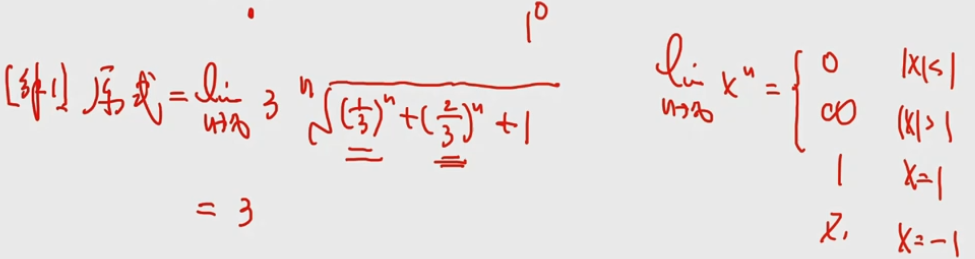 1⁰
[解1] 原式 = lim_{n→∞} 3 ⁿ√((1/3)ⁿ + (2/3)ⁿ + 1)
= 3
lim_{n→∞} xⁿ = {
0 |x|<1
∞ |x|>1
1 x=1
不, x=-1